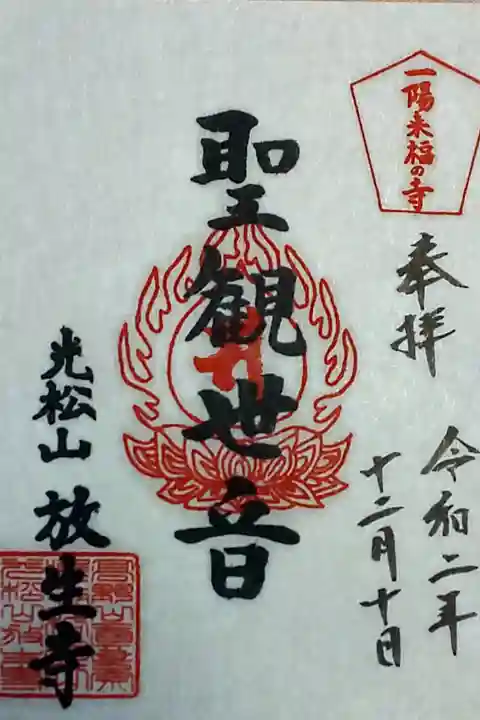 一陽来福の寺
奉拝
令和二年
十二月十日
聖観世音
光松山
放生寺